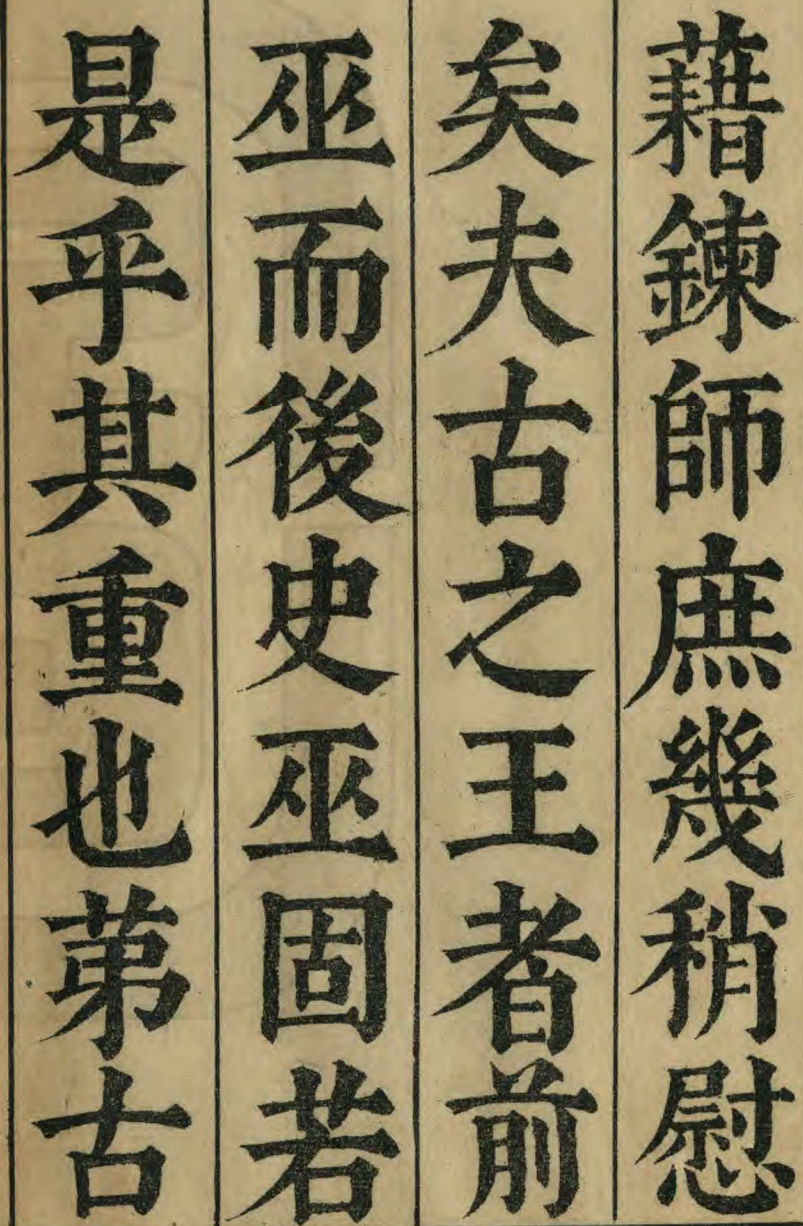 藉鍊師庶幾稍慰
矣夫古之王者前
巫而後史巫固若
是乎其重也苐古